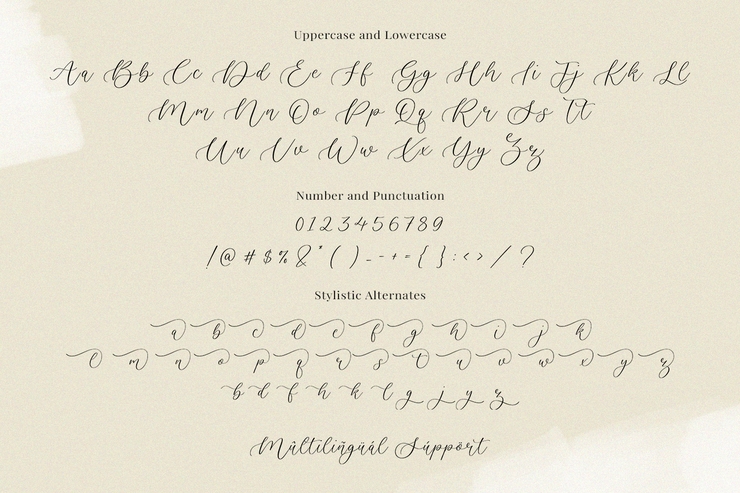 Uppercase and Lowercase
Aa Bb Cc Dd Ee Ff Gg Hh Ii Jj Kk Ll
Mm Nn Oo Pp Qq Rr Ss Tt
Uu Vv Ww Xx Yy Zz
Number and Punctuation
0123456789
!@#$%&*()_-+={}:<>/?
Stylistic Alternates
a b c d e f g h i j k
l m n o p q r s t u v w x y z
b d f h k l g j y z
Múltilíñgüál Súppört